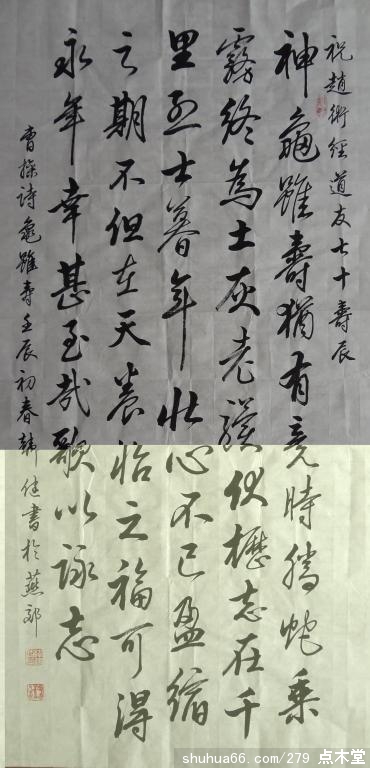 祝趙術經道友七十壽辰
神龜雖壽猶有竟時騰蛇乘
霧終為土灰老驥伏櫪志在千
里烈士暮年壯心不已盈縮
之期不但在天養怡之福可得
永年幸甚至哉歌以詠志
曹操詩龜雖壽壬辰初春韓書於燕郊
shuhua66.com/279 点木堂